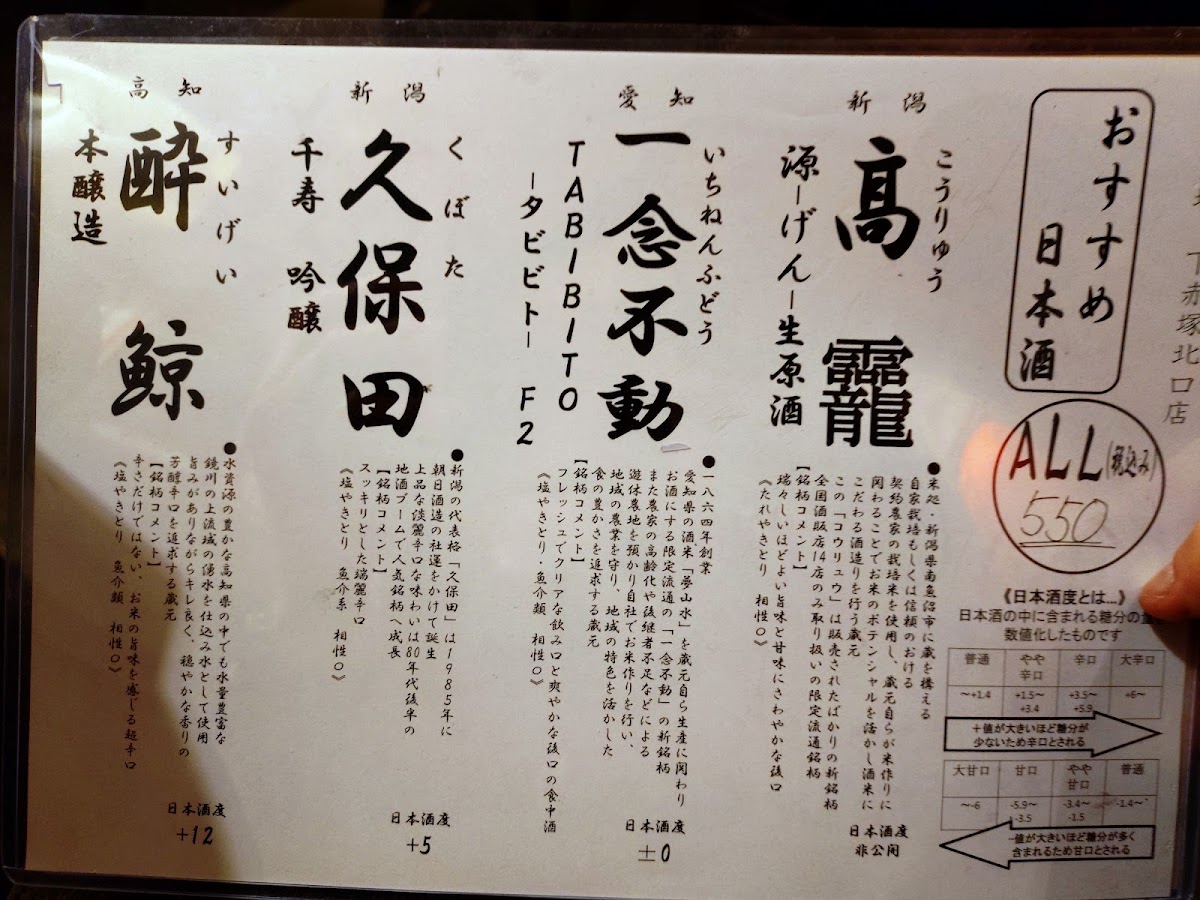 下赤塚北口店
おすすめ
日本酒
ALL(税込み)
550
《日本酒度とは…》
日本酒の中に含まれる糖分の量
数値化したものです
普通 やや辛口 辛口 大辛口
～+1.4 +1.5～+3.4 +3.5～+5.9 +6～
＋値が大きいほど糖分が
少ないため辛口とされる
大甘口 甘口 やや甘口 普通
～-6 -5.9～-3.5 -3.4～-1.5 -1.4～
-値が大きいほど糖分が多く
含まれるため甘口とされる
新潟
こうりゅう
高龗
源－げん－生原酒
●米処・新潟県南魚沼市に蔵を構える
自家栽培もしくは信頼のおける
契約農家の栽培米を使用し、蔵元自らが米作りに
関わることでお米のポテンシャルを活かし酒米に
こだわる酒造りを行う蔵元
この「コウリュウ」は販売されたばかりの新銘柄
全国酒販店14店のみ取り扱いの限定流通銘柄
【銘柄コメント】
瑞々しいほどよい旨味と甘味にさわやかな後口
《たれやきとり 相性○》
日本酒度
非公開
愛知
いちねんふどう
一念不動
TABIBITO
－タビビト－ F2
●一八六四年創業
愛知県の酒米「夢山水」を蔵元自ら生産に関わり
お酒にする限定流通の「一念不動」の新銘柄
また農家の高齢化や後継者不足などによる
遊休農地を預かり自社でお米作りを行い、
地域の農業を守り、地域の特色を活かした
食の豊かさを追求する蔵元
【銘柄コメント】
フレッシュでクリアな飲み口と爽やかな後口の食中酒
《塩やきとり・魚介類 相性○》
日本酒度
±0
新潟
くぼた
久保田
千寿 吟醸
●新潟の代表格「久保田」は1985年に
朝日酒造の社運をかけて誕生
上品な淡麗辛口な味わいは80年代後半の
地酒ブームで人気銘柄へ成長
【銘柄コメント】
スッキリとした端麗辛口
《塩やきとり 魚介系 相性○》
日本酒度
+5
高知
すいげい
酔鯨
本醸造
●水資源の豊かな高知県の中でも水量豊富な
鏡川の上流域の湧水を仕込み水として使用
旨みがありながらキレ良く、穏やかな香りの
芳醇辛口を追求する蔵元
【銘柄コメント】
辛さだけではない、お米の旨味を感じる超辛口
《塩やきとり 魚介類 相性○》
日本酒度
+12